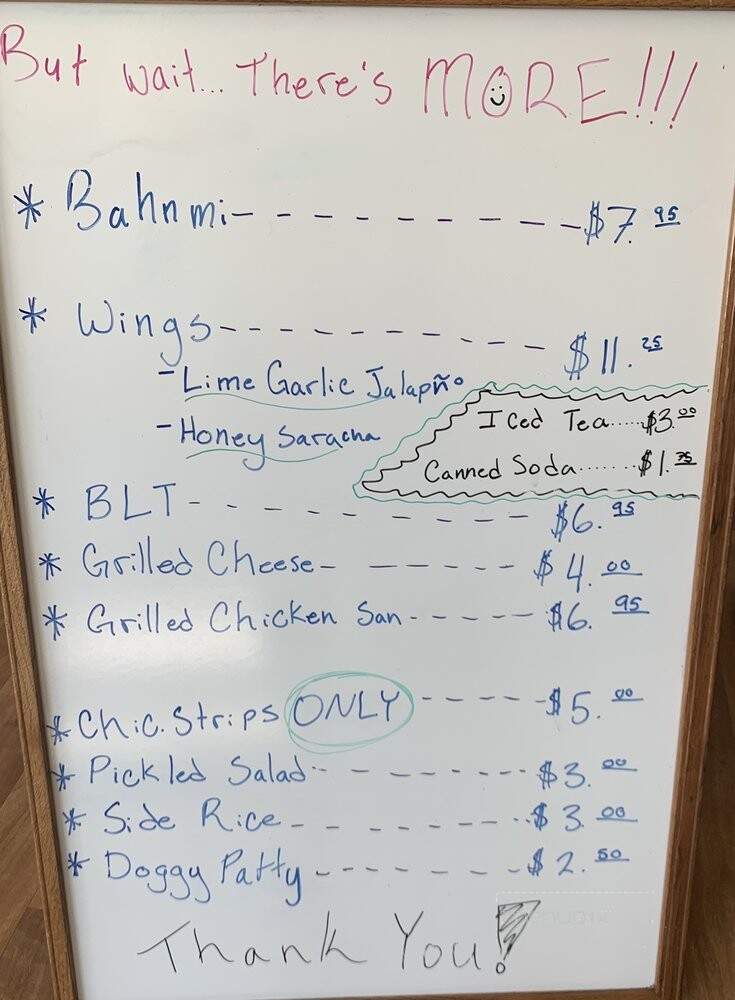 But wait... There's MORE!!!
* Bahnmi- - - - - - - - - - $7.95
* Wings- - - - - - - - - $11.25
- Lime Garlic Jalapño
- Honey Saracha
Iced Tea.....$3.00
Canned Soda.......$1.75
* BLT- - - - - - - - - $6.95
* Grilled Cheese- - - - - - $4.00
* Grilled Chicken San- - - - - $6.95
* Chic. Strips ONLY - - - - - $5.00
* Pickled Salad- - - - - - - $3.00
* Side Rice- - - - - - - - $3.00
* Doggy Patty- - - - - - - $2.50
Thank You!